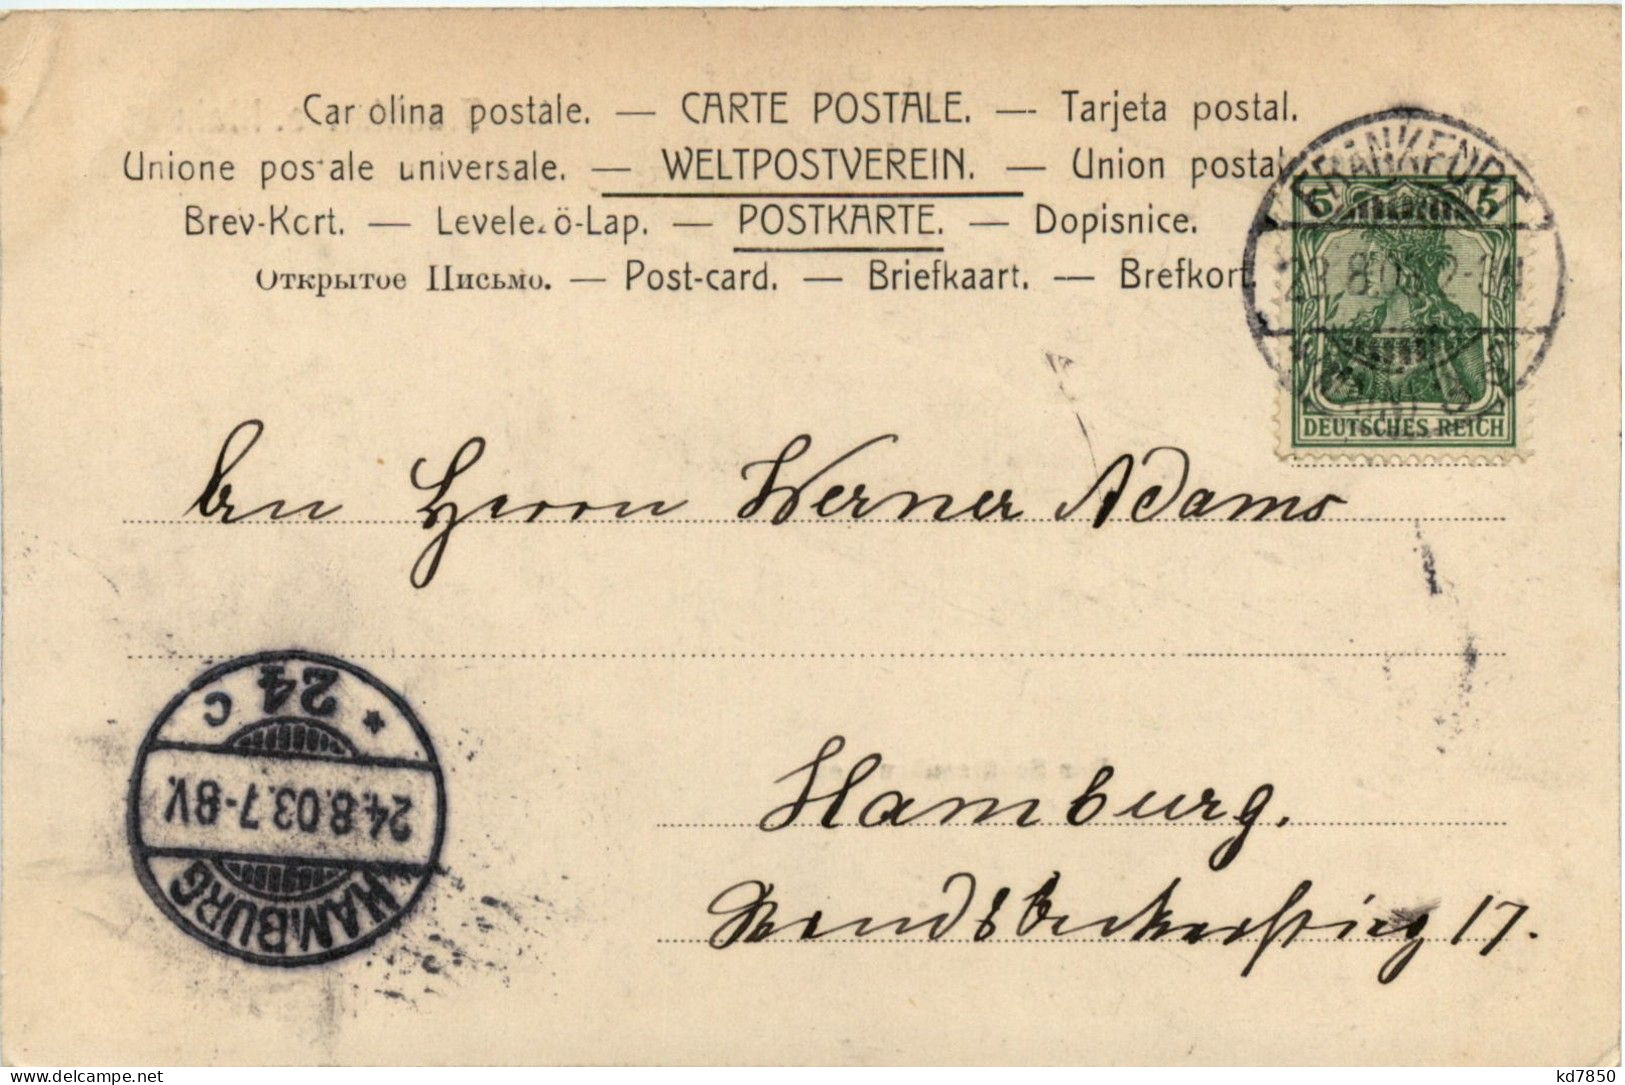 Carolina postale. — CARTE POSTALE. — Tarjeta postal.
Unione postale universale. — WELTPOSTVEREIN. — Union postal
Brev-Kort. — Levelező-Lap. — POSTKARTE. — Dopisnice.
Открытое Письмо. — Post-card. — Briefkaart. — Brefkort.
FRANKFURT
5 5
DEUTSCHES REICH
Herrn Werner Adams
HAMBURG
24.8.03.7-8V.
* 24 c
Hamburg.
Wandsbeckerstieg 17.
kd7850